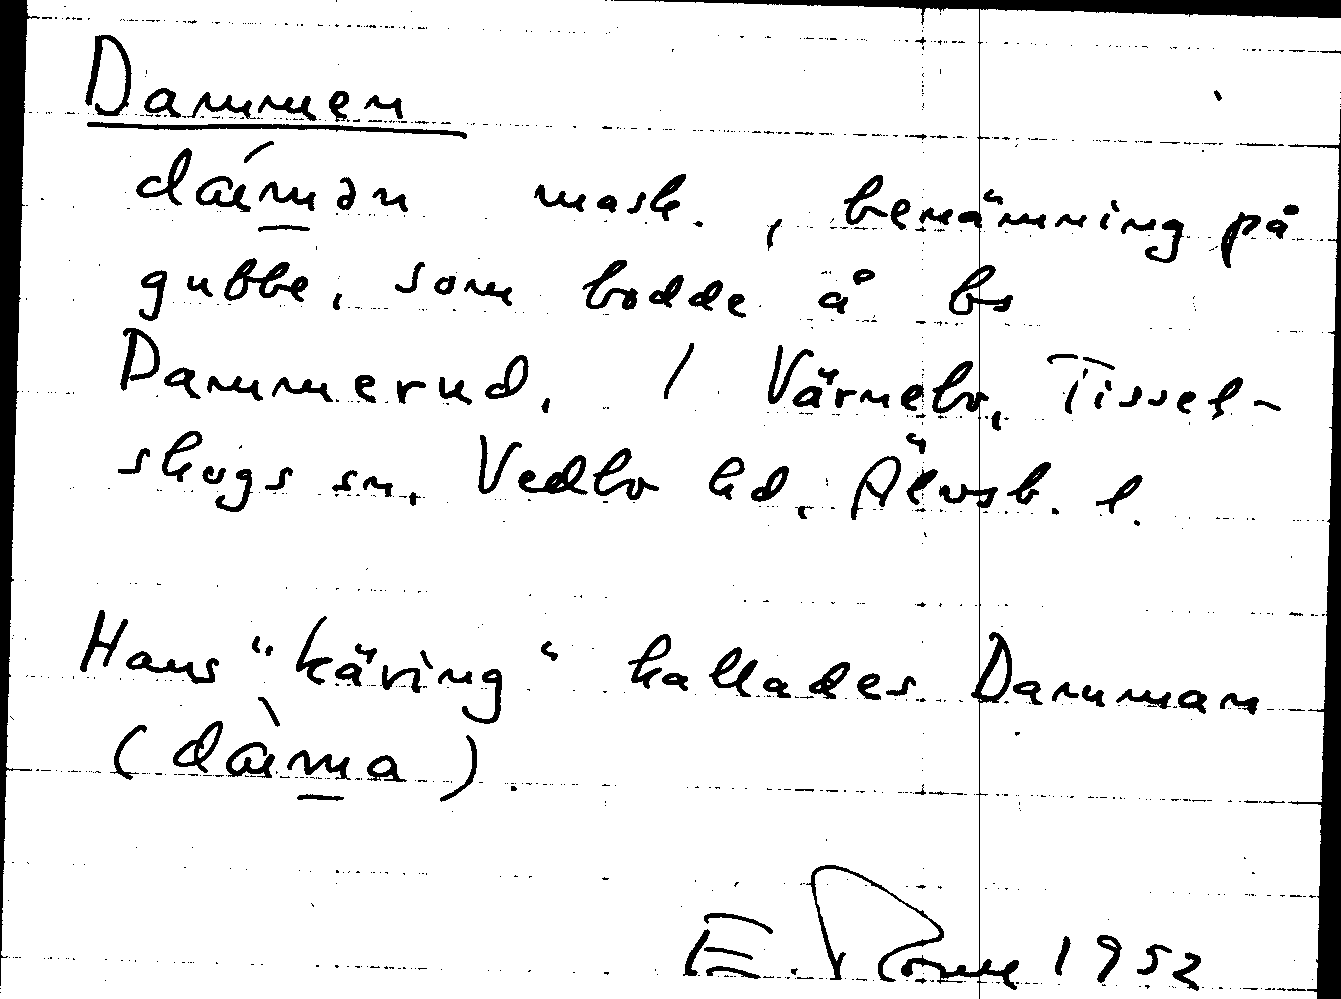 Dammen
dámən mask., benämning på
gubbe, som bodde å bs
Dammerud, / Värnebo, Tissel-
skogs sn, Vedbo hd, Älvsb. l.
Hans "käring" kallades Damman
(dàma).
E. 1952